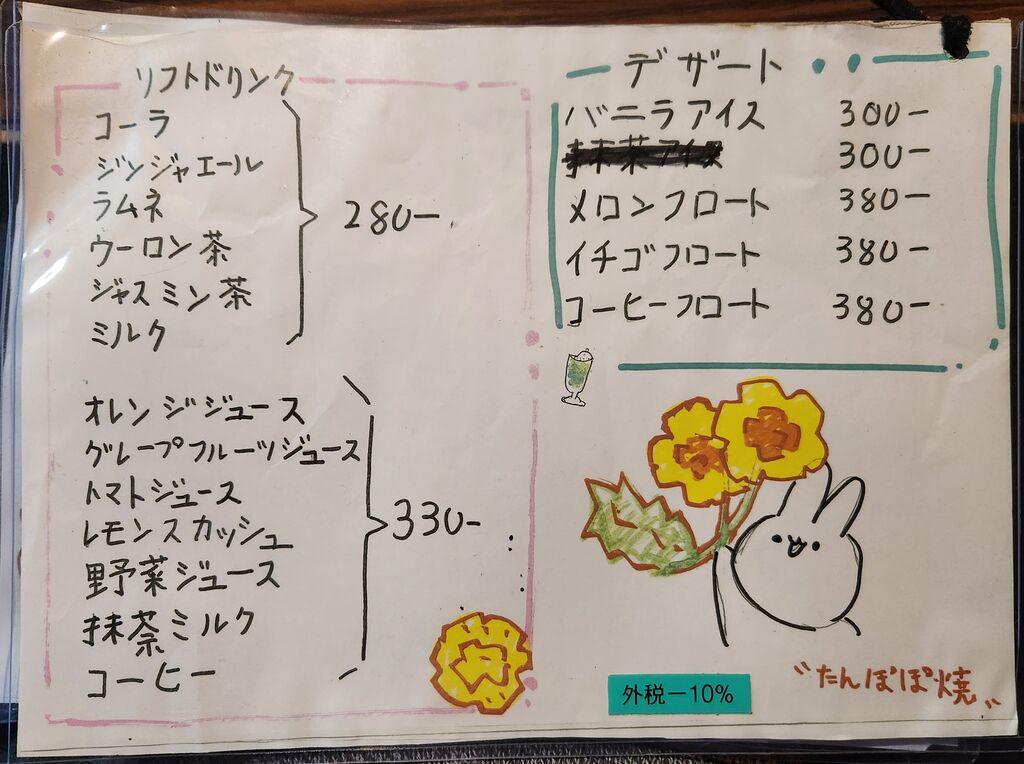 ソフトドリンク
コーラ
ジンジャエール
ラムネ
ウーロン茶
ジャスミン茶
ミルク
280-
オレンジジュース
グレープフルーツジュース
トマトジュース
レモンスカッシュ
野菜ジュース
抹茶ミルク
コーヒー
330-
デザート
バニラアイス 300-
抹茶アイス 300-
メロンフロート 380-
イチゴフロート 380-
コーヒーフロート 380-
外税ー10%
"たんぽぽ焼"